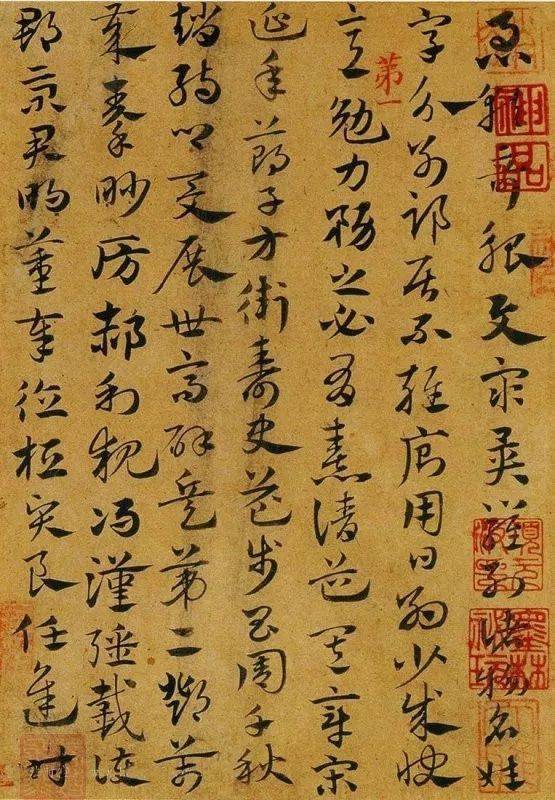 急就奇觚與衆異羅列諸物名姓
字分別部居不雜厠用日約少誠快
第一
意勉力務之必有憙請道其章宋
延年鄭子方衛壽史益步昌周千秋
趙孺卿爰展世高辟兵第二鄧萬
歲秦眇房郝利親馮漢彊戴護
郡景君明董奉德桓賢良任逢時